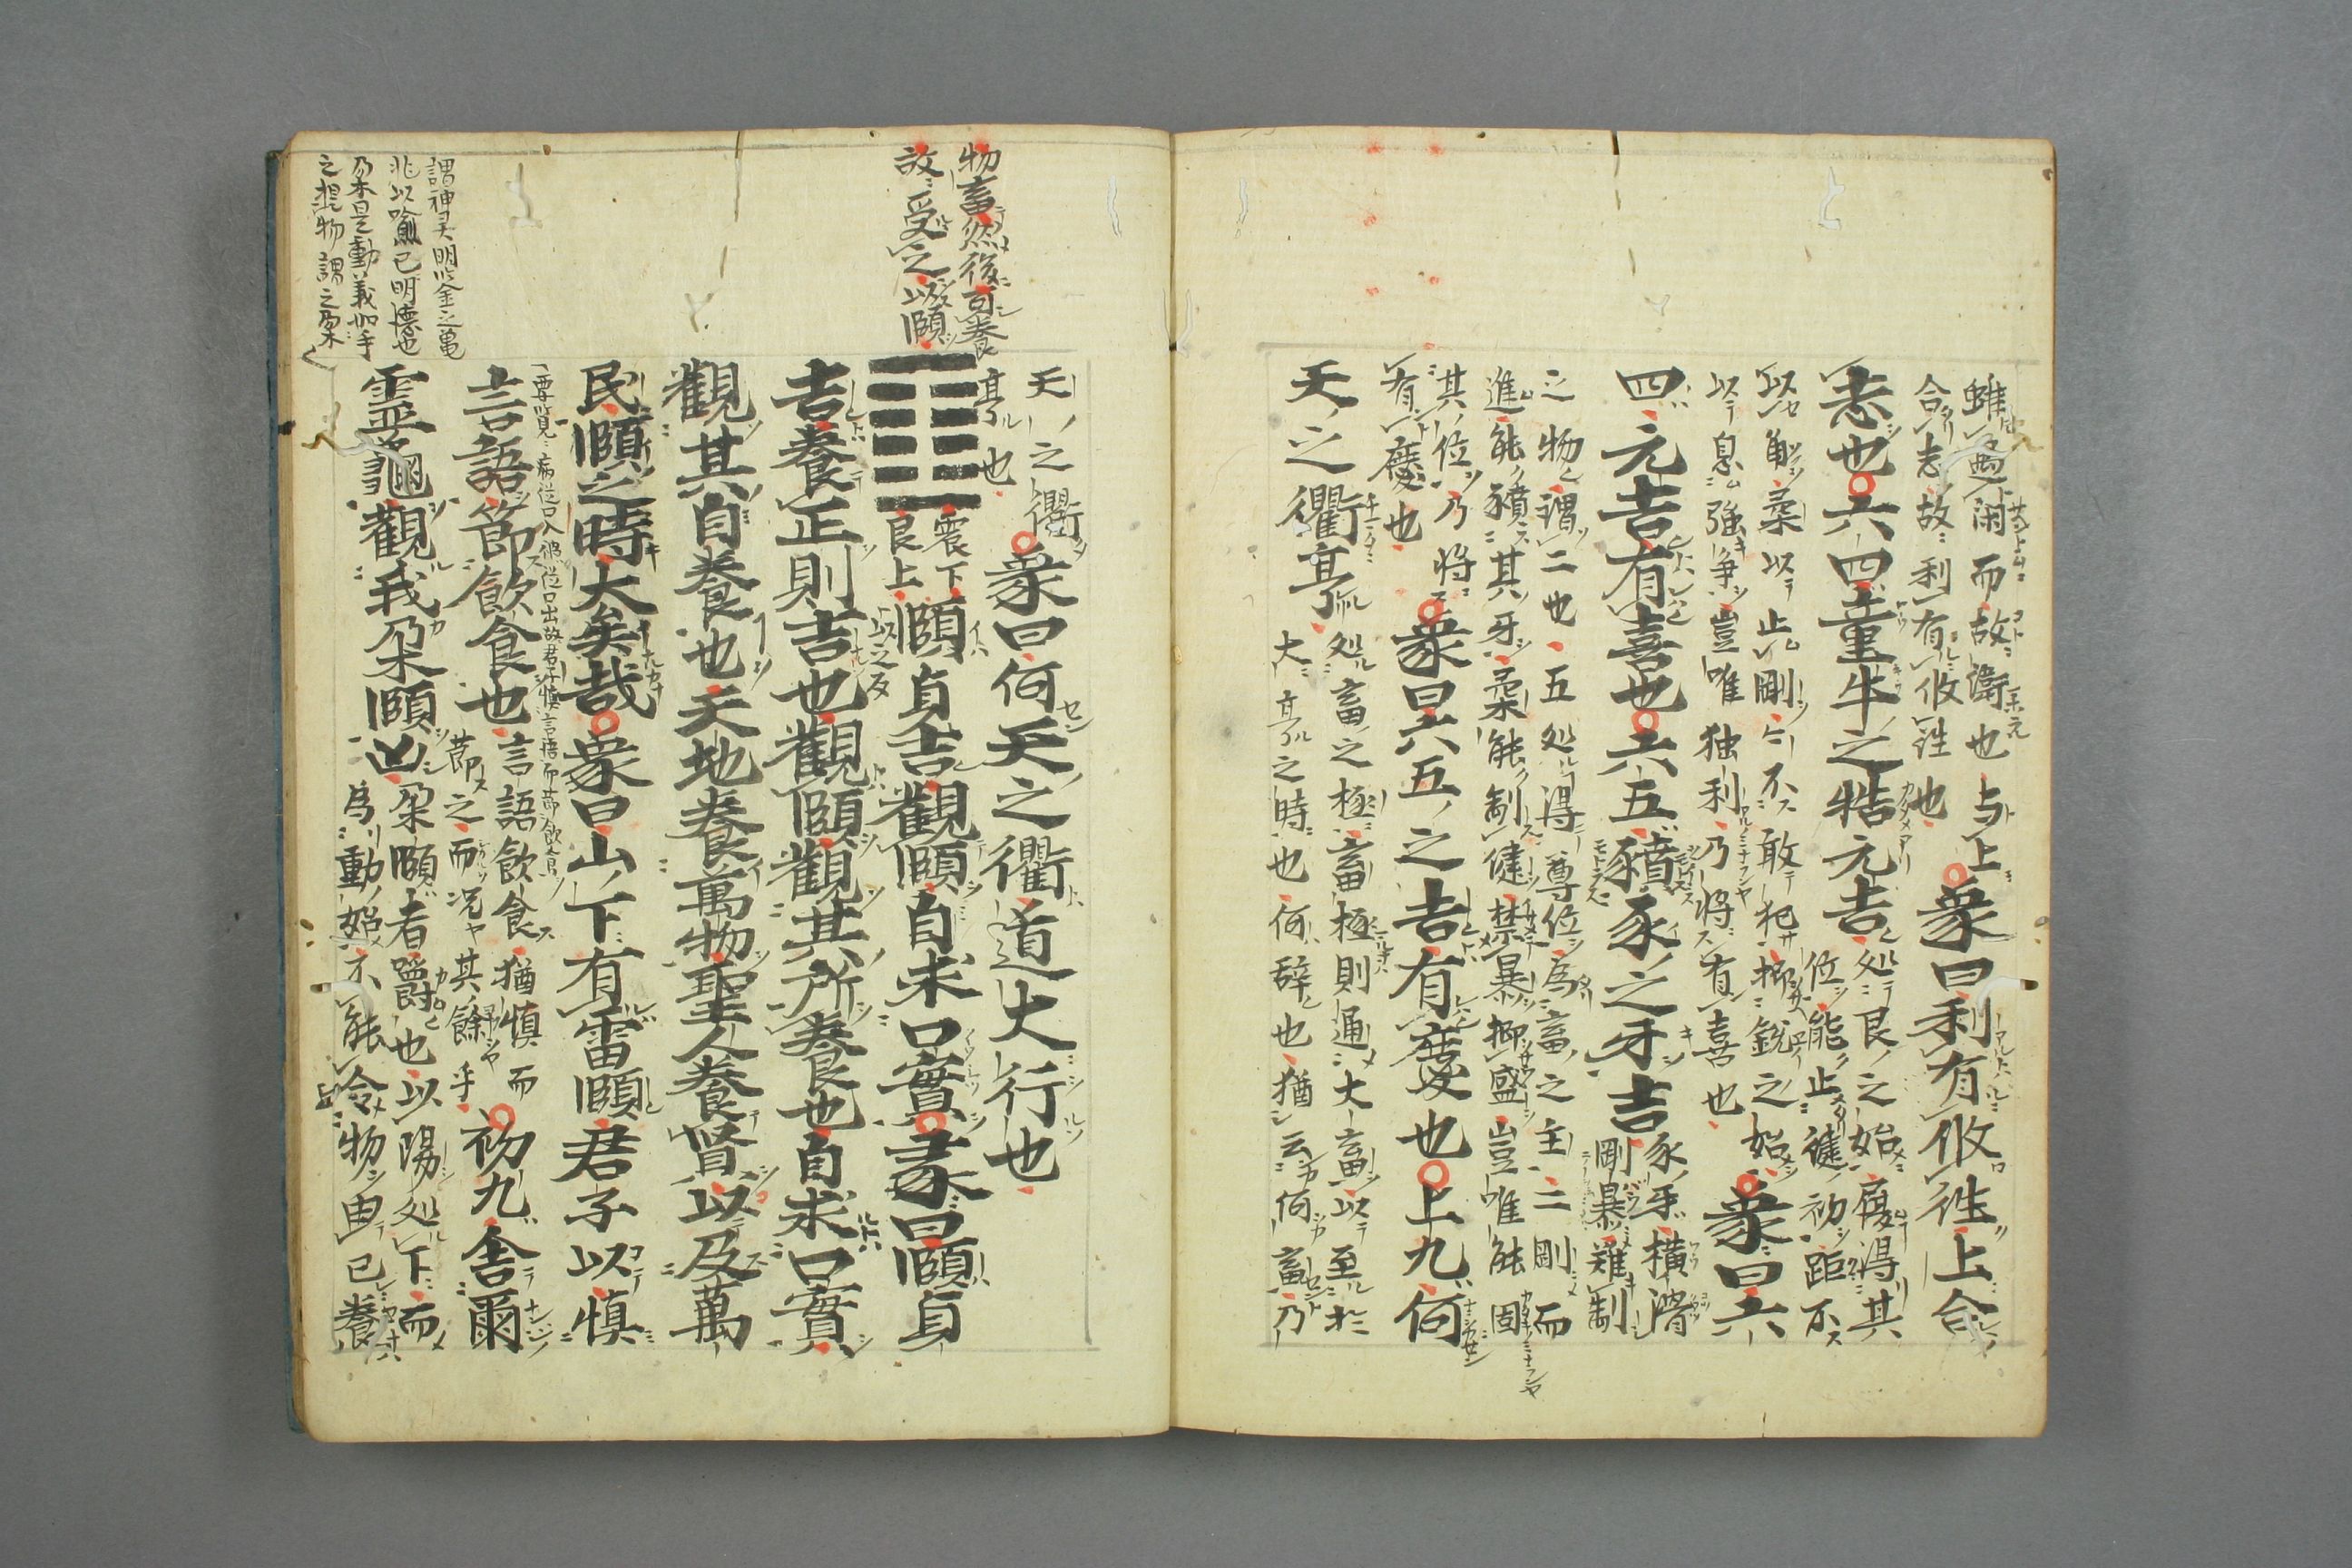 雖遇閑而故衛也与上
合志故利有攸往也
象曰利有攸往上合
志也六四童牛之牿元吉
処艮之始履得其
位能止健初距不
以角柔以止剛々不敢犯抑鋭之始
以息強争豈唯独利乃将有喜也
象曰六
四元吉有喜也六五豶豕之牙吉
豕牙横猾
剛暴難制
之物謂二也五処得尊位為畜之主二剛而
進能豶其牙柔能制健禁暴抑盛豈唯能固
其位乃将
有慶也
象曰六五之吉有慶也上九何
天之衢亨
処畜之極畜極則通大畜以至於
大亨之時也何辞也猶云何畜乃
天之衢
亨也
象曰何天之衢道大行也
物畜然後可養
故受之以頤
震下
艮上
頤貞吉觀頤自求口實彖曰頤貞
以之反
吉養正則吉也觀頤觀其所養也自求口實
觀其自養也天地養萬物聖人養賢以及萬
民頤之時大矣哉象曰山下有雷頤君子以慎
言語節飲食也
言語飲食猶慎而
節之而况其餘乎
初九舍爾
霊龜觀我朶頤凶
朶頤者嚼也以陽処下而
為動始不能令物由己養
謂神灵明鑒之亀
兆以喩己明德也
朶是動義如手
之捉物謂之朶